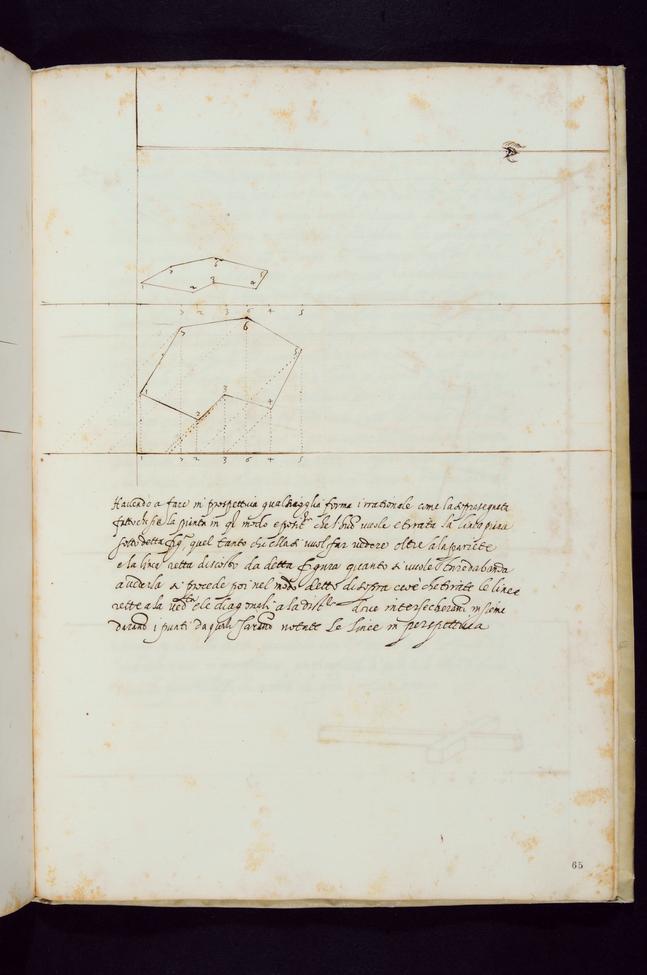 7 6 5
1 2 3 4
7 2 3 6 4 5
7 6
5
1 3
2 4
1 7 2 3 6 4 5
Havendo a fare in prospettiva qual si voglia forma irrationale come la
la pianta in modo che l' vuole e tirata la linea piana
sotto detta quel tanto che ella si vuol far vedere oltre a la pariete
e la linea retta discosto da detta figura quanto si vuole
a vederla si procede poi nel modo detto di sopra cioe che tirate le linee
rette a la e le diagonali a la dove intersecherano insieme
darano i punti da quali sarano notate le linee in perspettiva
65